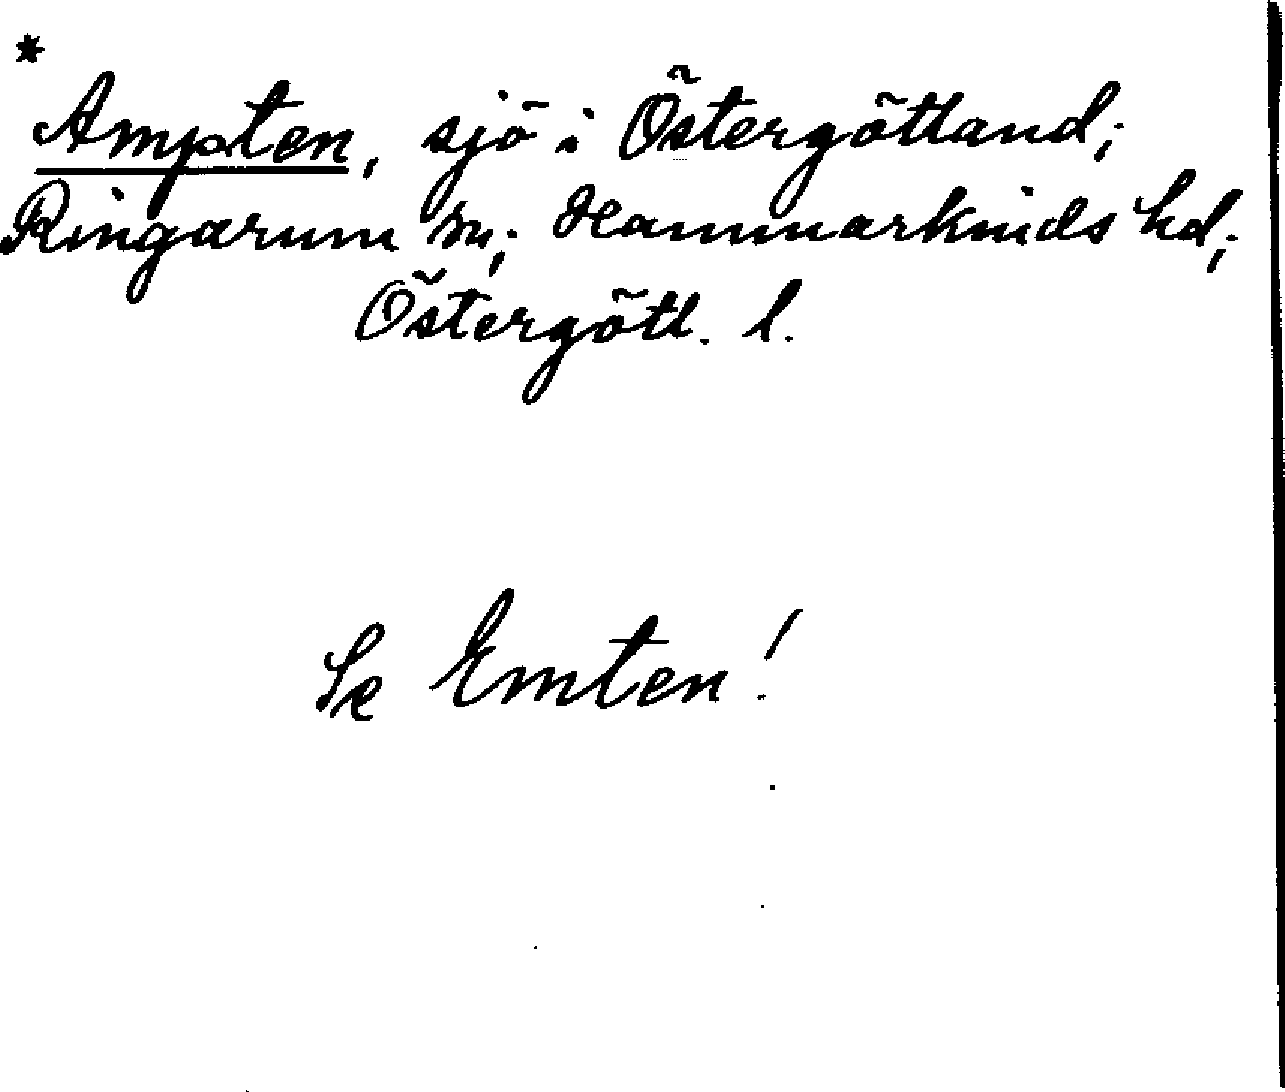 *
Ampten, sjö i Östergötland;
Ringarum sn; Hammarkinds hd;
Östergötl. l.
Se Emten!